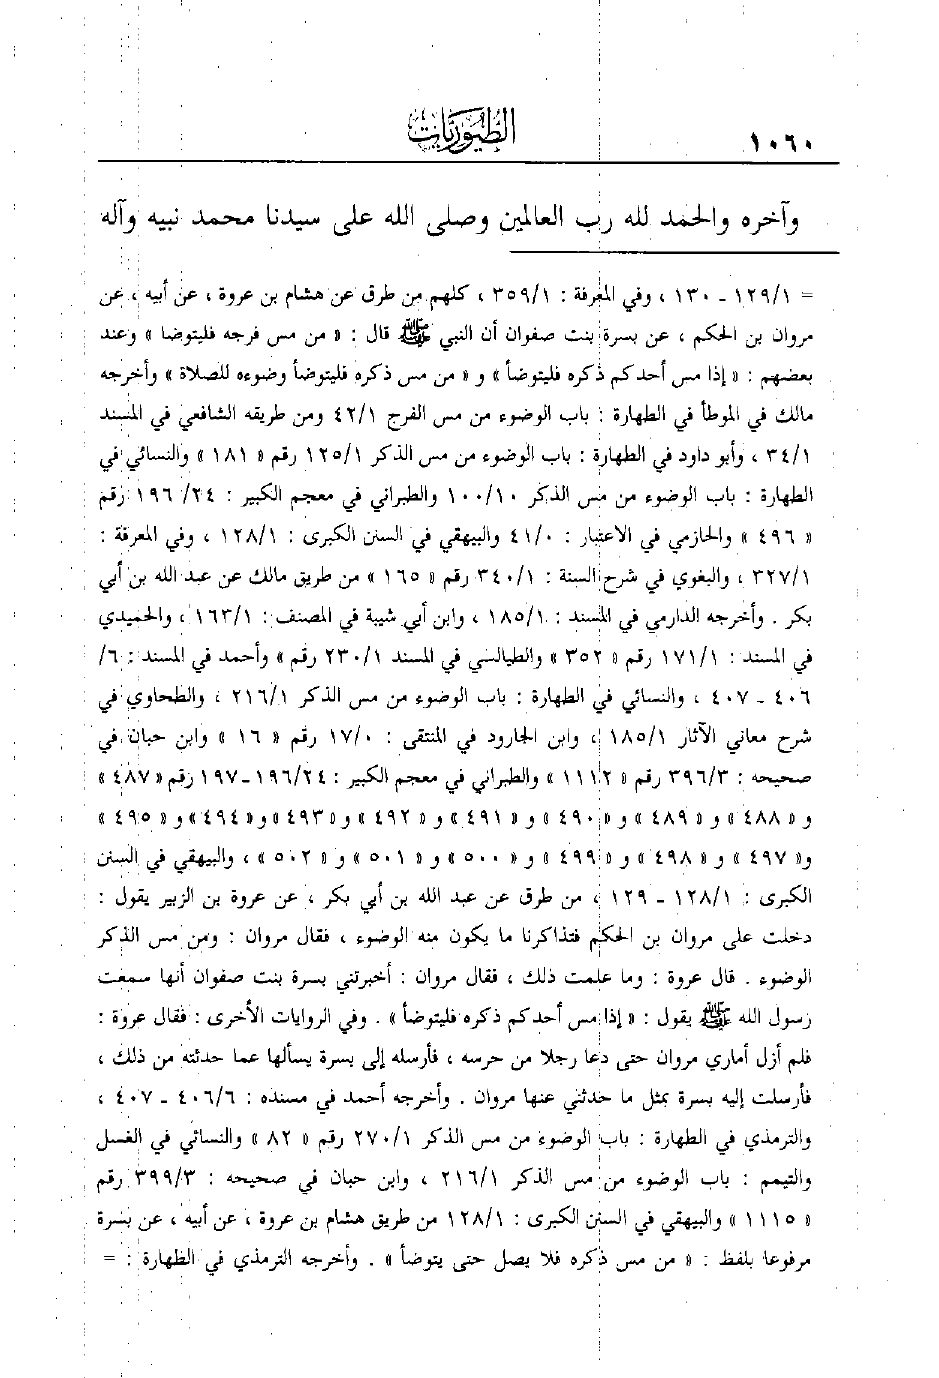 ١٠٦٠
الطيوريات
وآخره والحمد لله رب العالمين وصلى الله على سيدنا محمد نبيه وآله
= ١٢٩/١ ـ ١٣٠ ، وفي المعرفة : ٣٥٩/١ ، كلهم من طرق عن هشام بن عروة ، عن أبيه ، عن
مروان بن الحكم ، عن بسرة بنت صفوان أن النبي ﷺ قال : « من مس فرجه فليتوضا » وعند
بعضهم : « إذا مس أحدكم ذكره فليتوضأ » و « من مس ذكره فليتوضأ وضوءه للصلاة » وأخرجه
مالك في الموطأ في الطهارة : باب الوضوء من مس الفرج ٤٢/١ ومن طريقه الشافعي في المسند
٣٤/١ ، وأبو داود في الطهارة : باب الوضوء من مس الذكر ١٢٥/١ رقم « ١٨١ » والنسائي في
الطهارة : باب الوضوء من مس الذكر ١٠٠/١٠ والطبراني في معجم الكبير : ٢٤/ ١٩٦ رقم
« ٤٩٦ » والحازمي في الاعتبار : ٤١/٠ والبيهقي في السنن الكبرى : ١٢٨/١ ، وفي المعرفة :
٣٢٧/١ ، والبغوي في شرح السنة : ٣٤٠/١ رقم « ١٦٥ » من طريق مالك عن عبد الله بن أبي
بكر . وأخرجه الدارمي في المسند : ١٨٥/١ ، وابن أبي شيبة في المصنف : ١٦٣/١ ، والحميدي
في المسند : ١٧١/١ رقم « ٣٥٢ » والطيالسي في المسند ٢٣٠/١ رقم » وأحمد في المسند : ٦/
٤٠٦ ـ ٤٠٧ ، والنسائي في الطهارة : باب الوضوء من مس الذكر ٢١٦/١ ، والطحاوي في
شرح معاني الآثار ١٨٥/١ ، وابن الجارود في المنتقى : ١٧/٠ رقم « ١٦ » وابن حبان في
صحيحه : ٣٩٦/٣ رقم « ١١١٢ » والطبراني في معجم الكبير : ١٩٦/٢٤-١٩٧ رقم « ٤٨٧ »
و « ٤٨٨ » و « ٤٨٩ » و « ٤٩٠ » و « ٤٩١ » و « ٤٩٢ » و « ٤٩٣ » و « ٤٩٤ » و « ٤٩٥ »
و« ٤٩٧ » و « ٤٩٨ » و « ٤٩٩ » و « ٥٠٠ » و « ٥٠١ » و « ٥٠٢ » ، والبيهقي في السنن
الكبرى : ١٢٨/١ ـ ١٢٩ ، من طرق عن عبد الله بن أبي بكر ، عن عروة بن الزبير يقول :
دخلت على مروان بن الحكم فتذاكرنا ما يكون منه الوضوء ، فقال مروان : ومن مس الذكر
الوضوء . قال عروة : وما علمت ذلك ، فقال مروان : أخبرتني بسرة بنت صفوان أنها سمعت
رسول الله ﷺ يقول : « إذا مس أحدكم ذكره فليتوضأ » . وفي الروايات الأخرى : فقال عروة :
فلم أزل أماري مروان حتى دعا رجلا من حرسه ، فأرسله إلى بسرة يسألها عما حدثته من ذلك ،
فأرسلت إليه بسرة بمثل ما حدثني عنها مروان . وأخرجه أحمد في مسنده : ٤٠٦/٦ ـ ٤٠٧ ،
والترمذي في الطهارة : باب الوضوء من مس الذكر ٢٧٠/١ رقم « ٨٢ » والنسائي في الغسل
والتيمم : باب الوضوء من مس الذكر ٢١٦/١ ، وابن حبان في صحيحه : ٣٩٩/٣ رقم
« ١١١٥ » والبيهقي في السنن الكبرى : ١٢٨/١ من طريق هشام بن عروة ، عن أبيه ، عن بسرة
مرفوعا بلفظ : « من مس ذكره فلا يصل حتى يتوضأ » . وأخرجه الترمذي في الطهارة : =